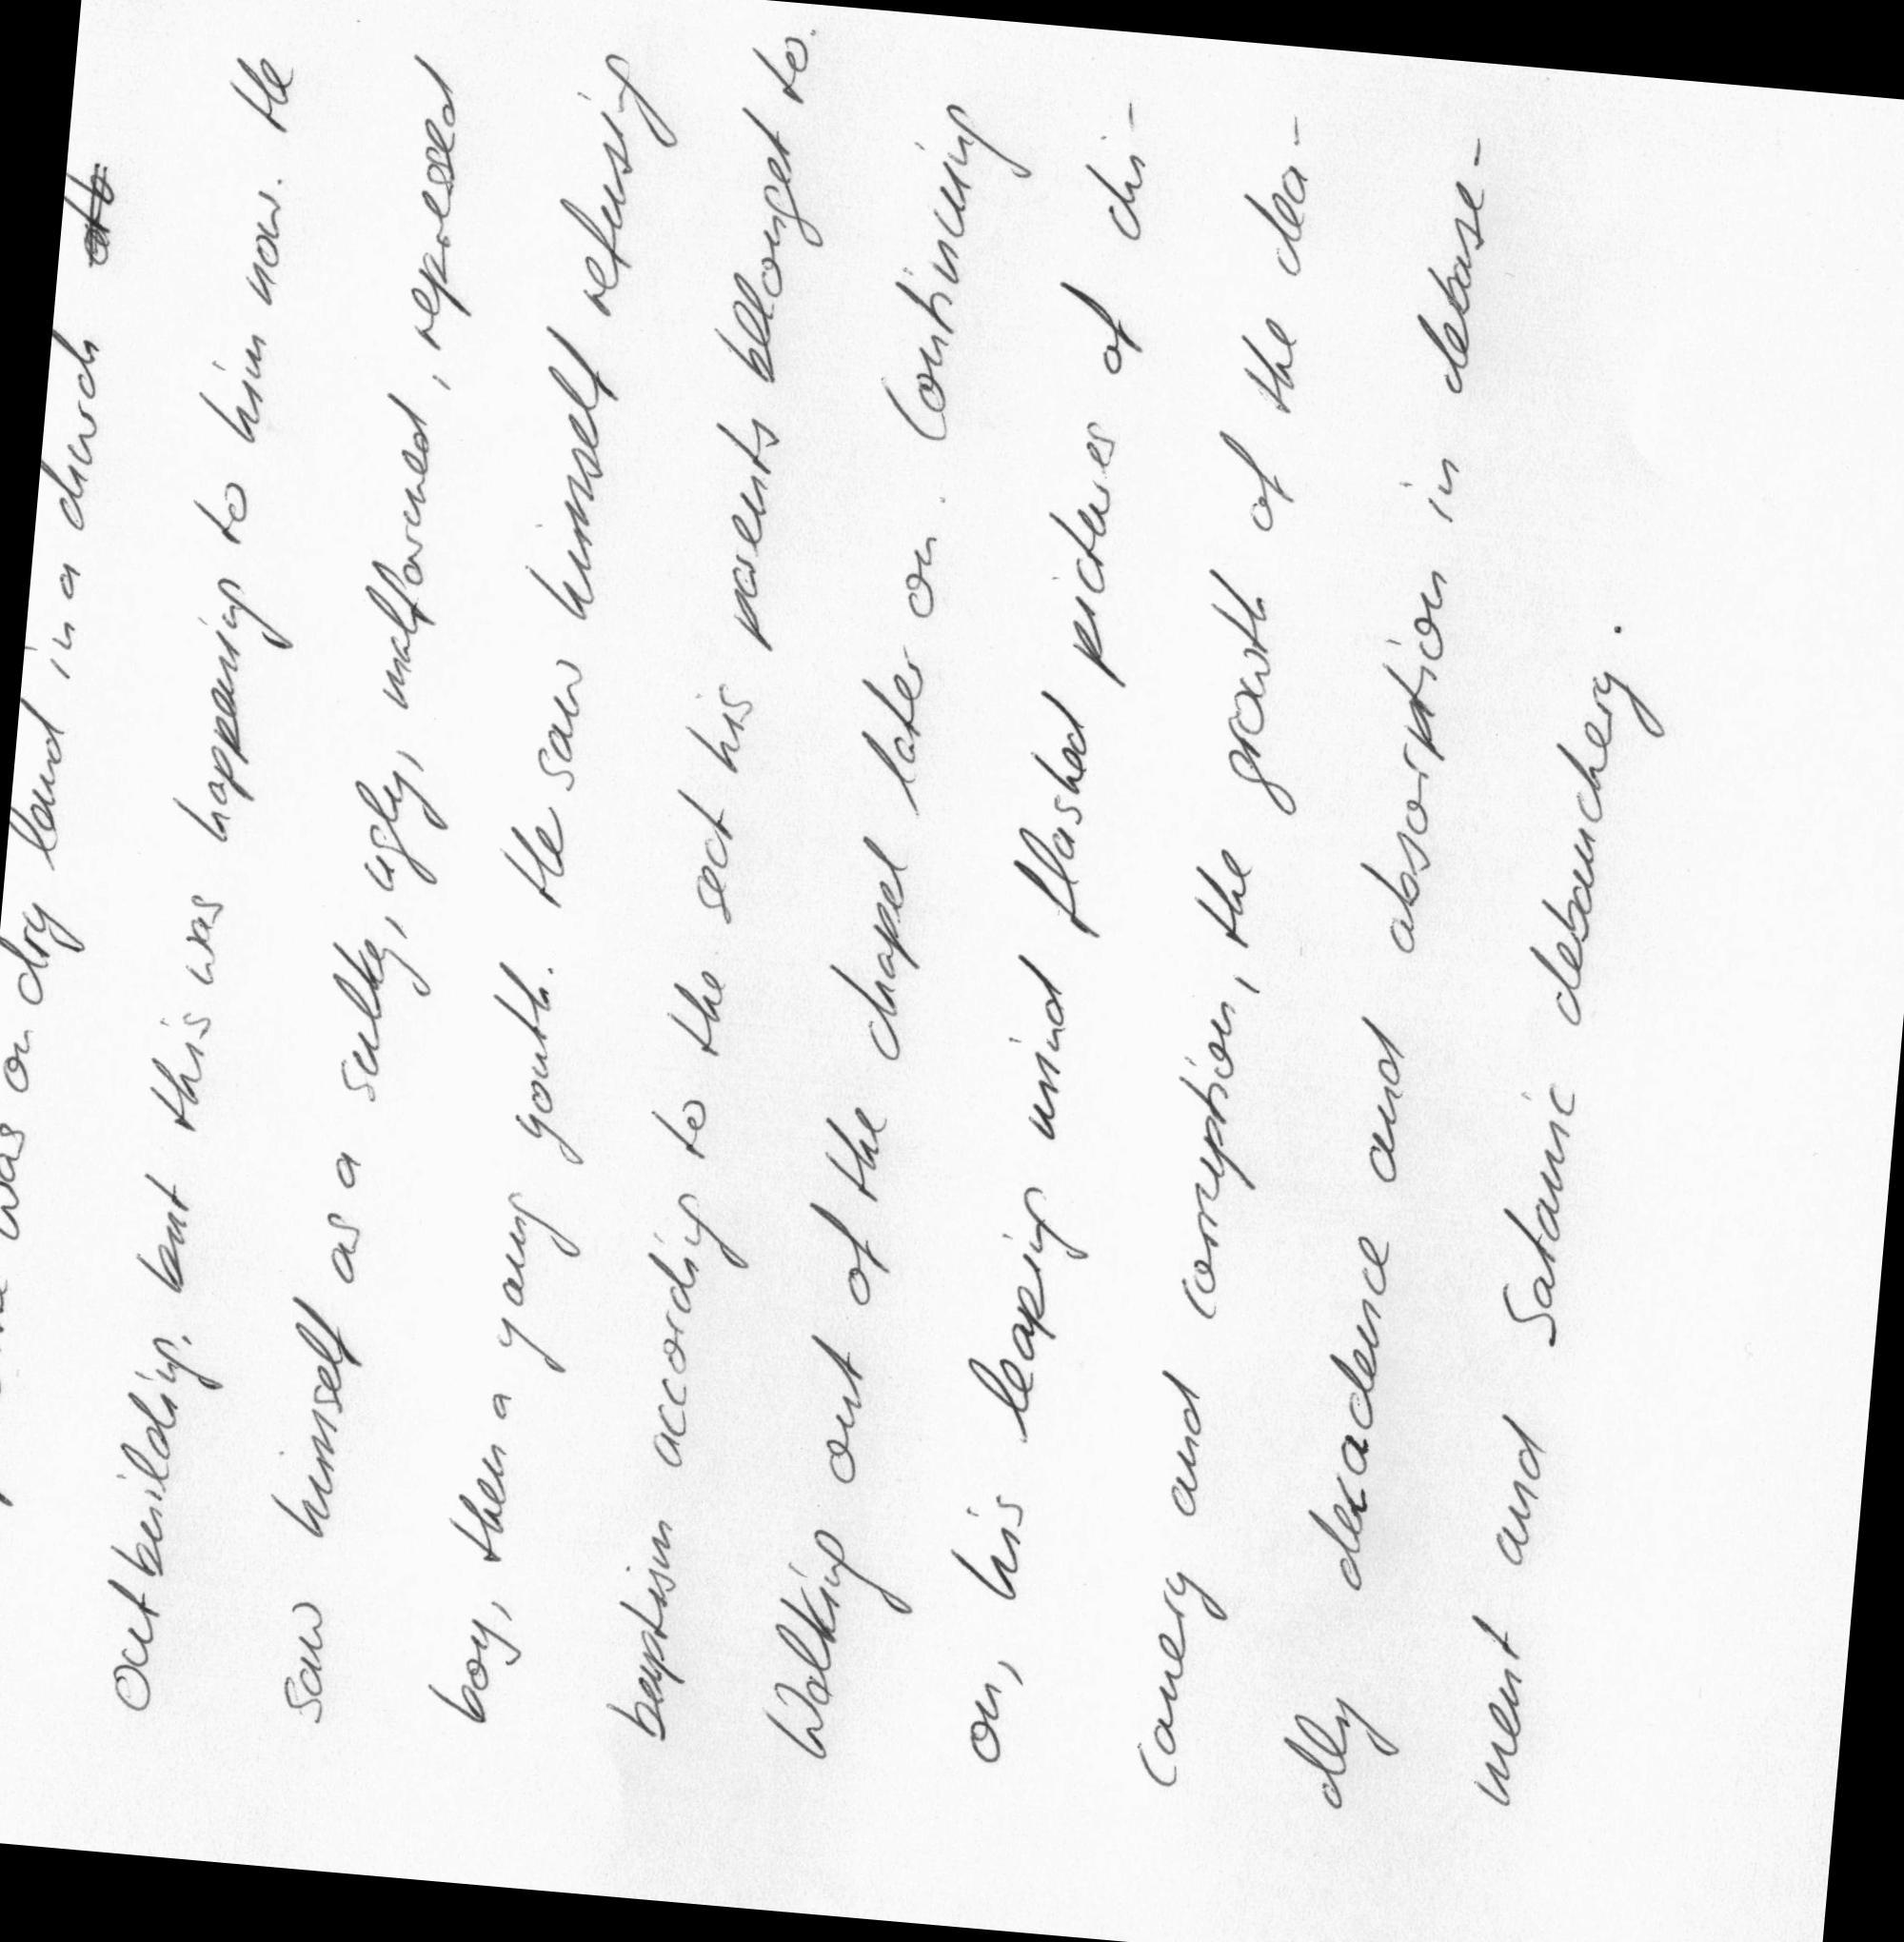 was on dry land in a church
outbuilding, but this was happening to him now. He
saw himself as a sulky, ugly, malformed, repressed
boy, then a young youth. He saw himself refusing
baptism according to the sect his parents belonget to.
Walking out of the chapel later on. Continuing
on, his leaping mind flashed pictures of chi-
canery and corruption, the growth of the dea-
dly decadence and absorption in debase-
ment and Satanic debauchery.